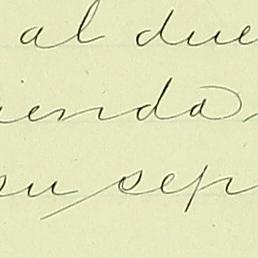 al due
ienda
su sep